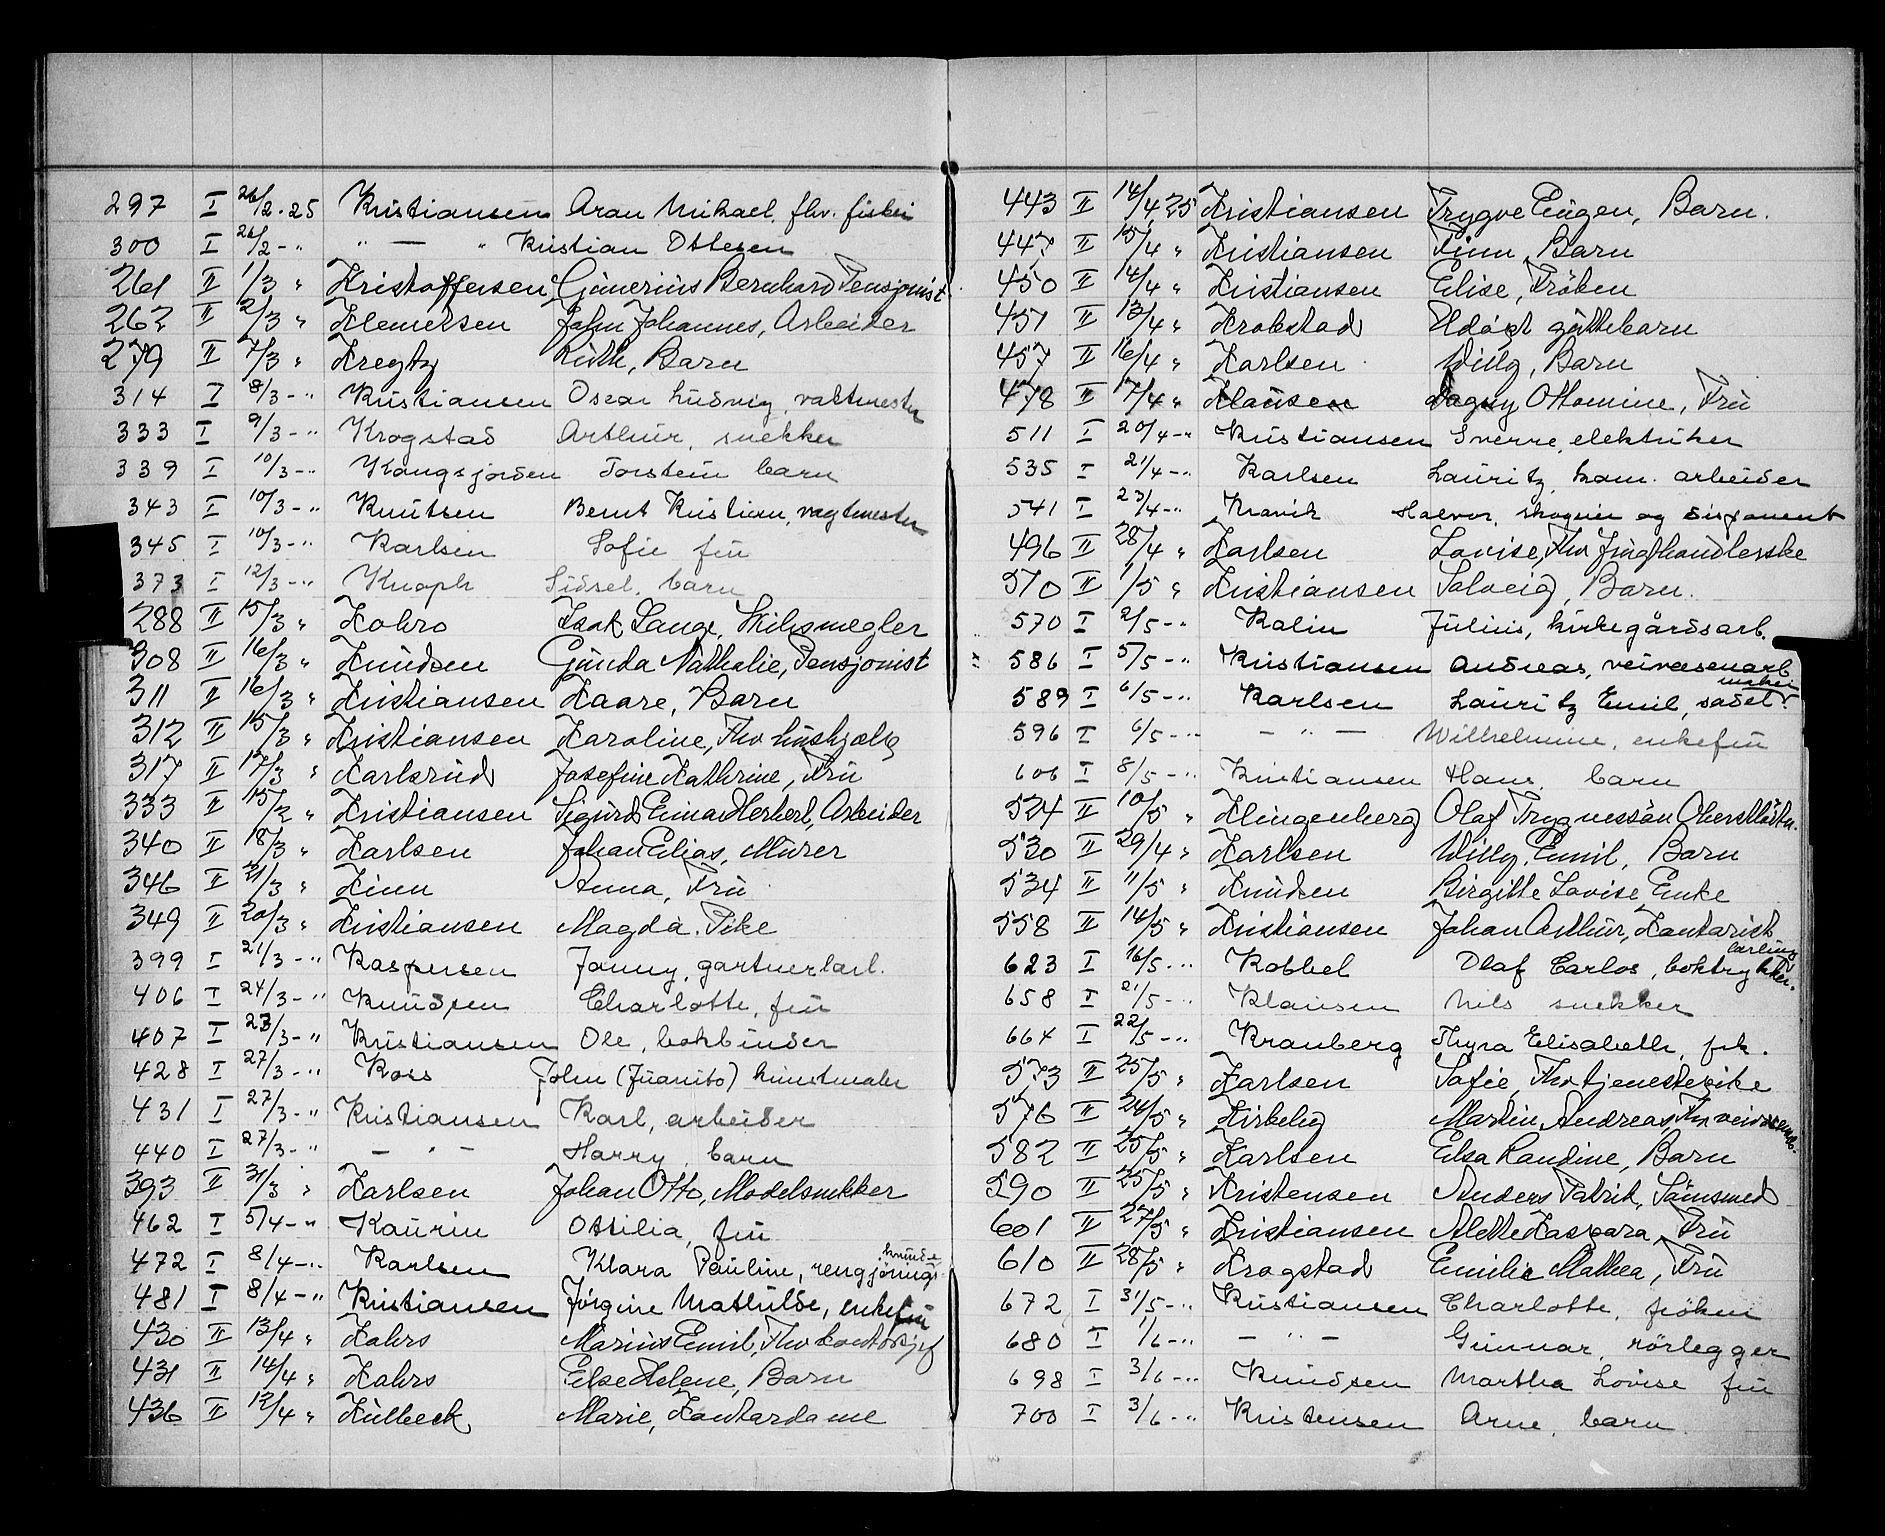 297 I 26/2.25 Kristiansen Aron Mikael, fhv. fisker
300 I 26/2 - " " — " Kristian Ottesen
261 II 1/3 " Kristoffersen Gunerius Bernhard Pensjonist
262 II 2/3 " Klemetsen John Johannes, Arbeider
279 II 7/3 " Kregtz Ruth, Barn
314 I 8/3 - " Kristiansen Oscar Ludvig, vaktmester
333 I 9/3 - " Krogstad Arthur, snekker
339 I 10/3 - " Kongsjorden Torstein barn
343 I 10/3 - " Knutsen Bernt Kristian, vagtmester
345 I 10/3 - " Karlsen Sofie fru
373 I 12/3 - " Knoph Sidsel, barn
288 II 15/3 " Kobro Isak Lange, Skibsmegler
308 II 16/3 " Knudsen Gunda Nathalie, Pensjonist
311 II 16/3 " Kristiansen Kaare, Barn
312 II 15/3 " Kristiansen Karoline, Fhv hushjælp
317 II 17/3 " Karlsrud Josefine Kathrine, Fru
333 II 15/2 " Kristiansen Sigurd Einar Herbert, Arbeider
340 II 18/3 " Karlsen Johan Elias, Murer
346 II 21/3 " Kinn Anna, Fru
349 II 20/3 " Kristiansen Magda, Pike
399 I 21/3 - " Kaspersen Jonny, gartnerlærl.
406 I 24/3 - " Knudsen Charlotte, fru
407 I 23/3 - " Kristiansen Ole, bokbinder
428 I 27/3 - " Ross John (Juanito) kunstmaler
431 I 27/3 - " Kristiansen Karl, arbeider
440 I 27/3 - " — " — Harry, barn
393 II 31/3 " Karlsen Johan Otto, Modelsnekker
462 I 5/4 - " Kaurin Ottilia, fru
472 I 8/4 - " Karlsen Klara Pauline, rengjørings-
kvinde
481 I 8/4 - " Kristiansen Jørgine Mathilde, enkefru
430 II 13/4 " Kahrs Marius Emil, Fhv kontorsjef
431 II 14/4 " Kahrs Else Helene, Barn
436 II 12/4 " Kulbeck Marie, Kontordame
443 II 14/4 25 Kristiansen Trygve Eugen, Barn.
447 II 15/4 " Kristiansen Finn, Barn
450 II 14/4 " Kristiansen Elise, Frøken
451 II 13/4 " Krokstad Udøpt guttebarn
457 II 16/4 " Karlsen Willy, Barn
478 II 17/4 " Klausen Dagny Ottomine, Fru
511 I 20/4 - " Kristiansen Sverre, elektriker
535 I 21/4 - " Karlsen Lauritz, kom. arbeider
541 I 23/4 - " Kravik Halvor, skogeier og disponent
496 II 28/4 " Karlsen Lovise, Fhv Jinghandlerske
510 II 1/5 " Kristiansen Solveig, Barn.
570 I 2/5 - " Kolin Julius, kirkegårdsarb.
586 I 5/5 - " Kristiansen Andreas, veivæsenarb.
589 I 6/5 - " Karlsen Lauritz Emil, sadel-
maker
596 I 6/5 - " — " — Wilhelmine, enkefru
606 I 8/5 - " Kristiansen Hans barn
524 II 10/5 " Klingenberg Olaf Trygvessøn
530 II 29/4 " Karlsen Willy Emil, Barn
534 II 11/5 " Knudsen Birgitte Lovise Enke
558 II 14/5 " Kristiansen Johan Arthur, Kontorist
623 I 16/5 - " Kobbel Olaf Carlos, boktrykker-
lærling
658 I 21/5 - " Klausen Nils snekker
664 I 22/5 - " Kranberg Thyra Elisabeth, frk.
573 II 25/5 " Karlsen Sofie, Fhv tjenestepike
576 II 24/5 " Kirkeby Martin Andreas, Fhv
582 II 25/5 " Karlsen Elsa Randine, Barn
590 II 25/5 " Kristensen Anders Fabrik, Sømsmed
601 II 27/5 " Kristiansen Alette Kaspara, Fru
610 II 28/5 " Krogstad Emilie Mathea, Fru
672 I 31/5 - " Kristiansen Charlotte, frøken
680 I 1/6 - " — " — Gunnar, rørlegger
698 I 3/6 - " Knudsen Martha Lovise fru
700 I 3/6 - " Kristensen Arne, barn